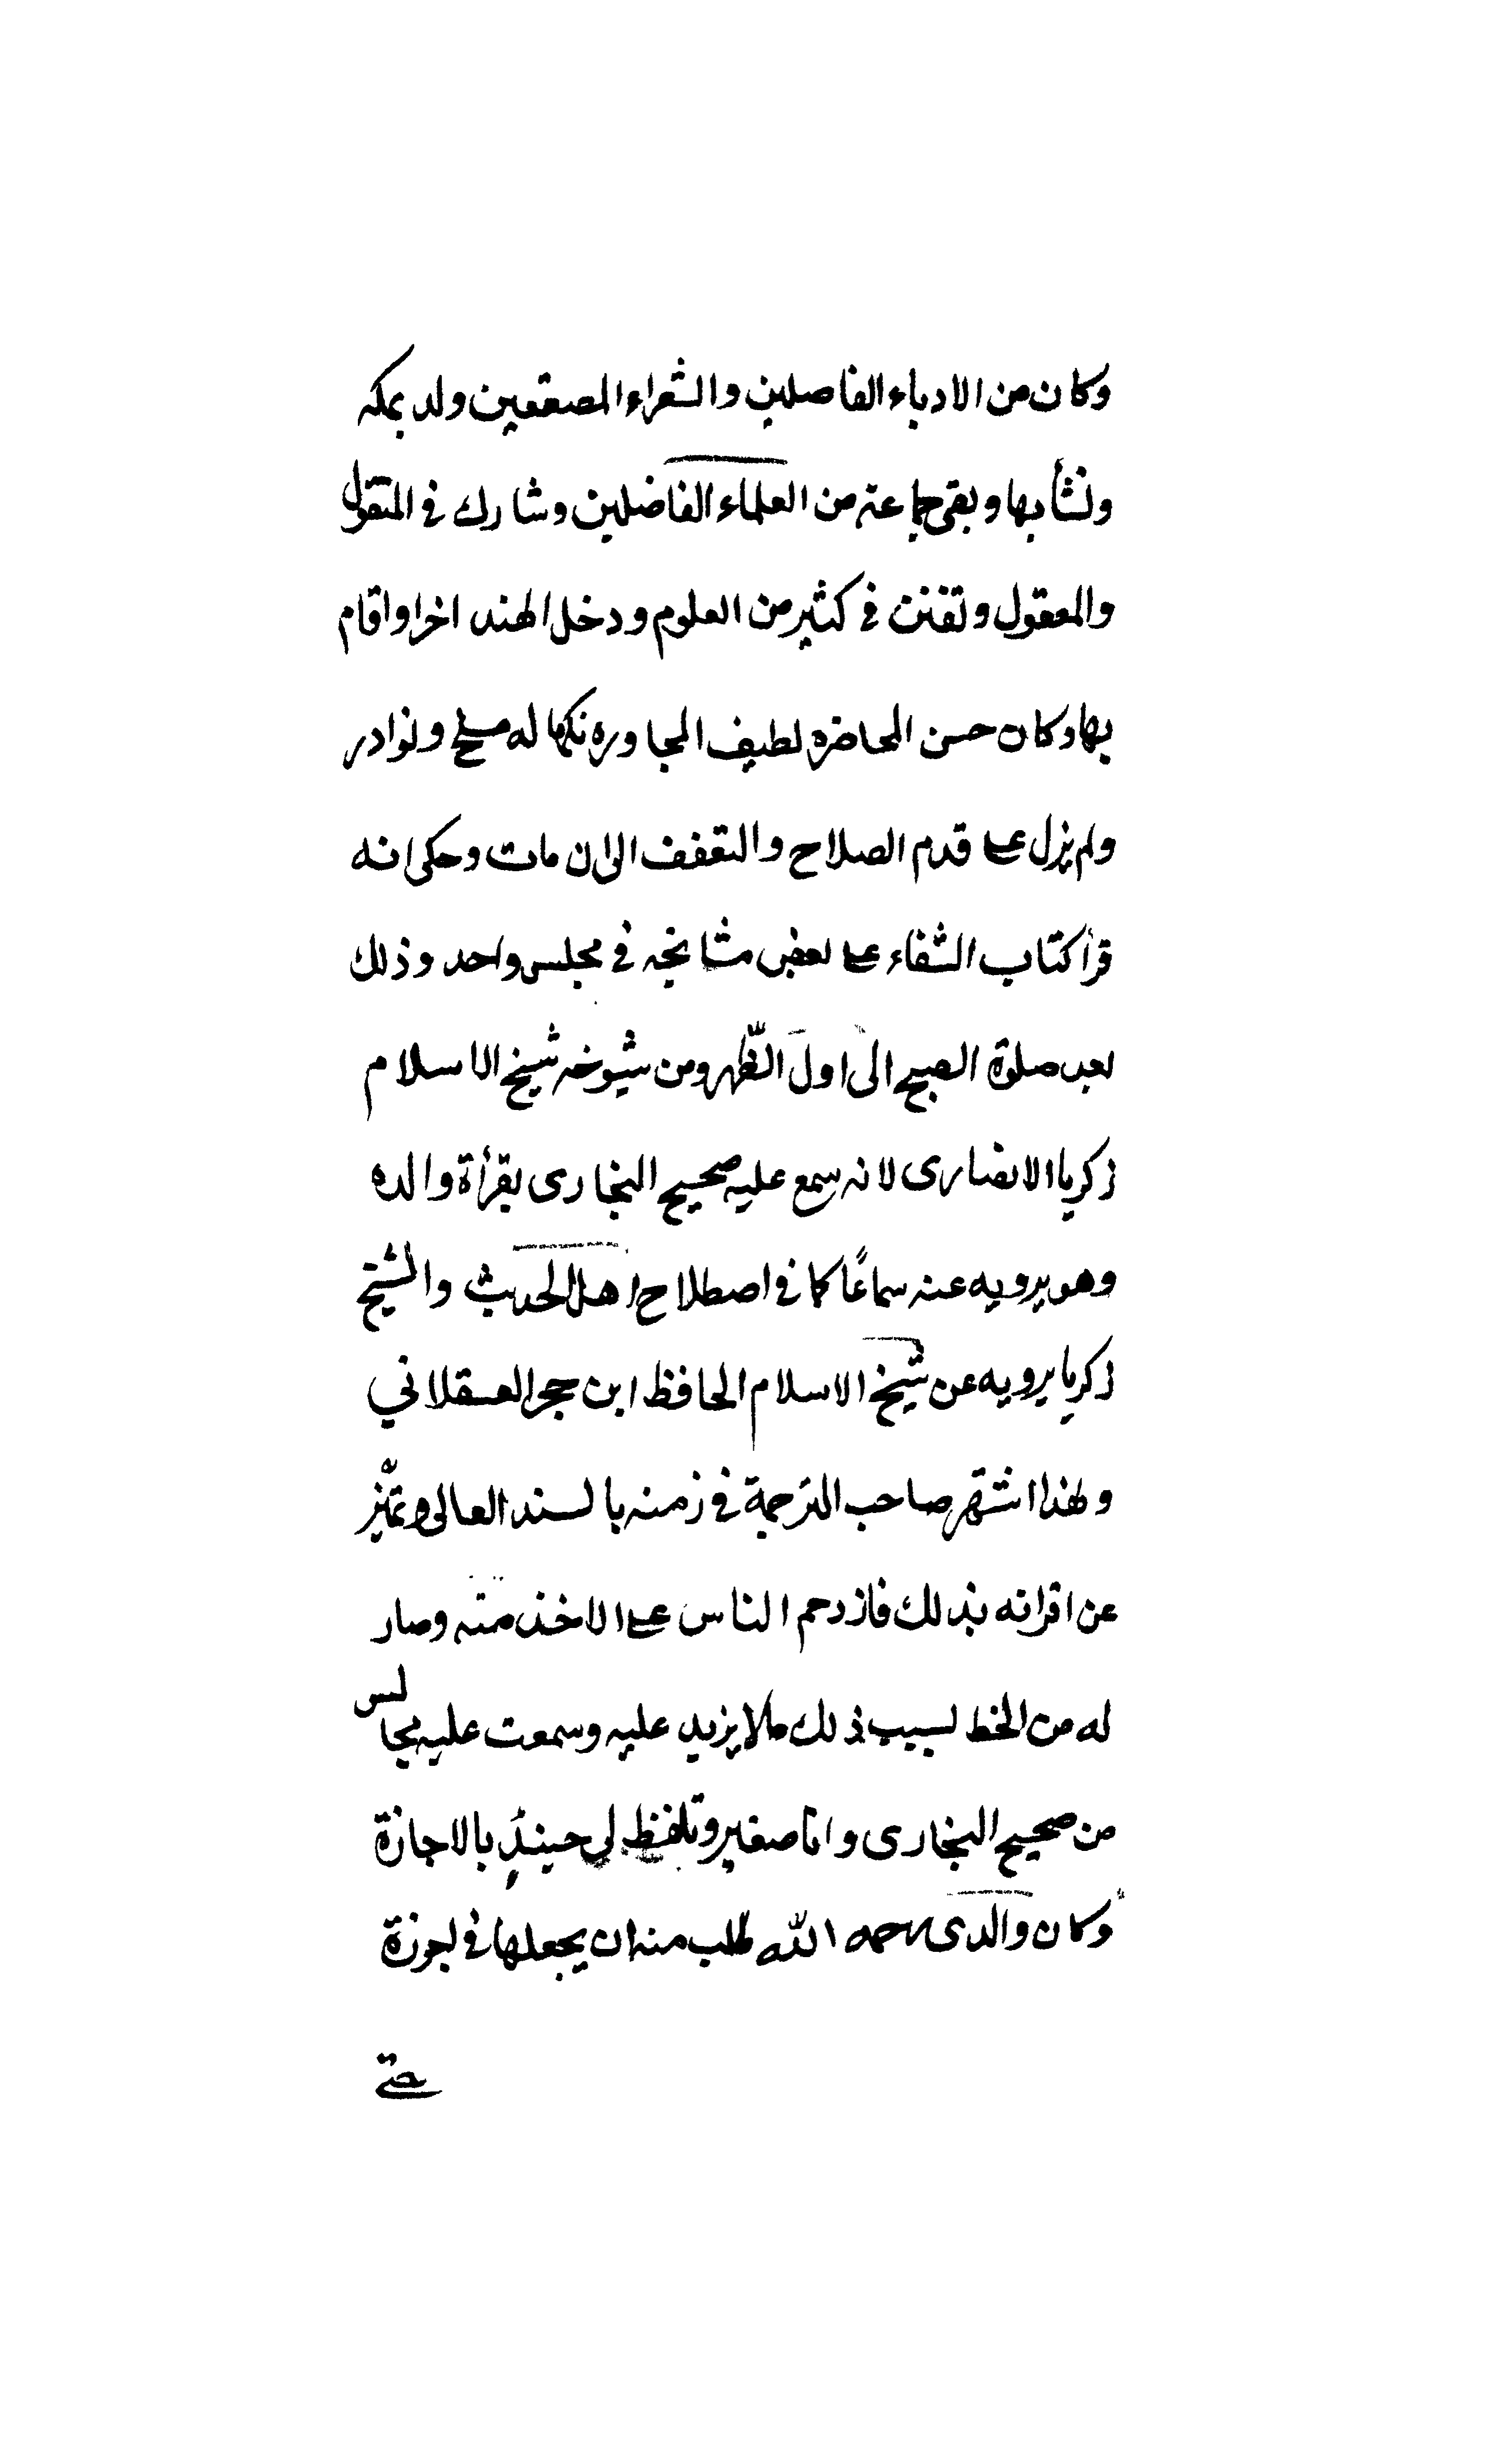 وكان من الادباء الفاصلين والشعراء المصقعين ولد بمكه
ونشأ بها وبقى جماعته من العلماء الفاضلين وشارك فى المنقول
والمعقول وتفنن في كثير من العلوم ودخل الهند اخرا واقام
بها وكان حسن المحاضره لطيف المجاوره فكها له ملح ونوادر
ولم يزل على قدم الصلاح والتعفف الى ان مات وحكى انه
قرأ كتاب الشفاء على بعض مشايخه في مجلس واحد وذلك
بعد صلوة الصبح الى اول الظهر ومن شيوخه شيخ الاسلام
زكريا الانصارى لانه سمع عليه صحيح البخارى بقرأة والده
وهو يرويه عنه سماعًا كما في اصطلاح اهل الحديث والشيخ
زكريا يرويه عن شيخ الاسلام الحافظ ابن حجر العسقلاني
ولهذا اشتهر صاحب الترجمة في زمنه بالسند العالى وتميّز
عن اقرانه بذلك فازدحم الناس على الاخذ منه وصار
له من الخط بسبب ذلك مالا يزيد عليه وسمعت عليه مجالس
من صحيح البخارى وانا صغير وتلفظ لى حينئذٍ بالاجازة
وكان والدى رحمه الله طلب منه ان يجعلها في
حتى